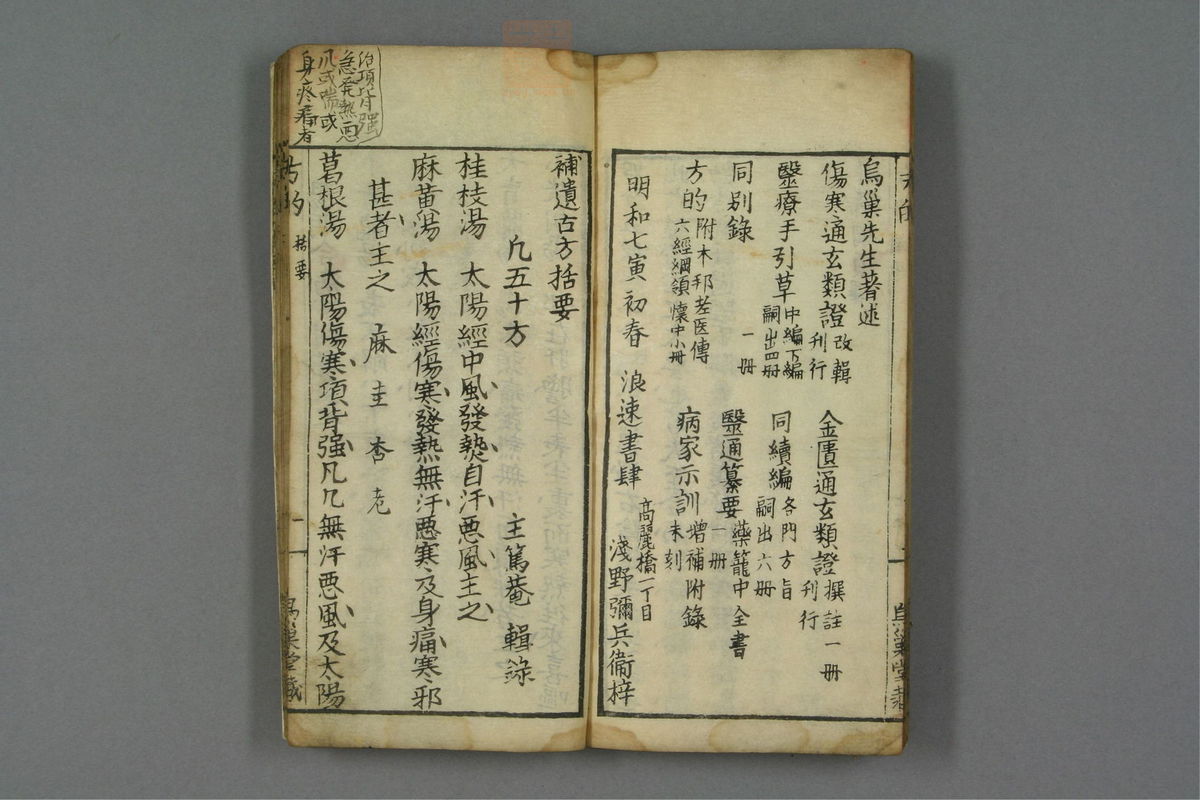 烏巢先生著述
傷寒通玄類證 改輯刊行
金匱通玄類證 撰註一册刊行
醫療手引草 中編下編嗣出四册
同續編 各門方旨嗣出六册
同別錄 一册
醫通纂要 藥籠中全書一册
方的 附本邦老医傳六經綱領懷中小册
病家示訓 增補附錄未刻
明和七寅初春 浪速書肆 高麗橋一丁目
淺野彌兵衞梓
補遺古方括要
凢五十方 主篤菴 輯錄
桂枝湯 太陽經中風發𤍠自汗悪風主之
麻黃湯 太陽經傷寒發熱無汗悪寒及身痛寒邪
甚者主之 麻 圭 杏
葛根湯 太陽傷寒項背强几几無汗悪風及太陽
治項背强
急発熱悪
風或喘或
身疼痛者
括要
烏巢堂藏